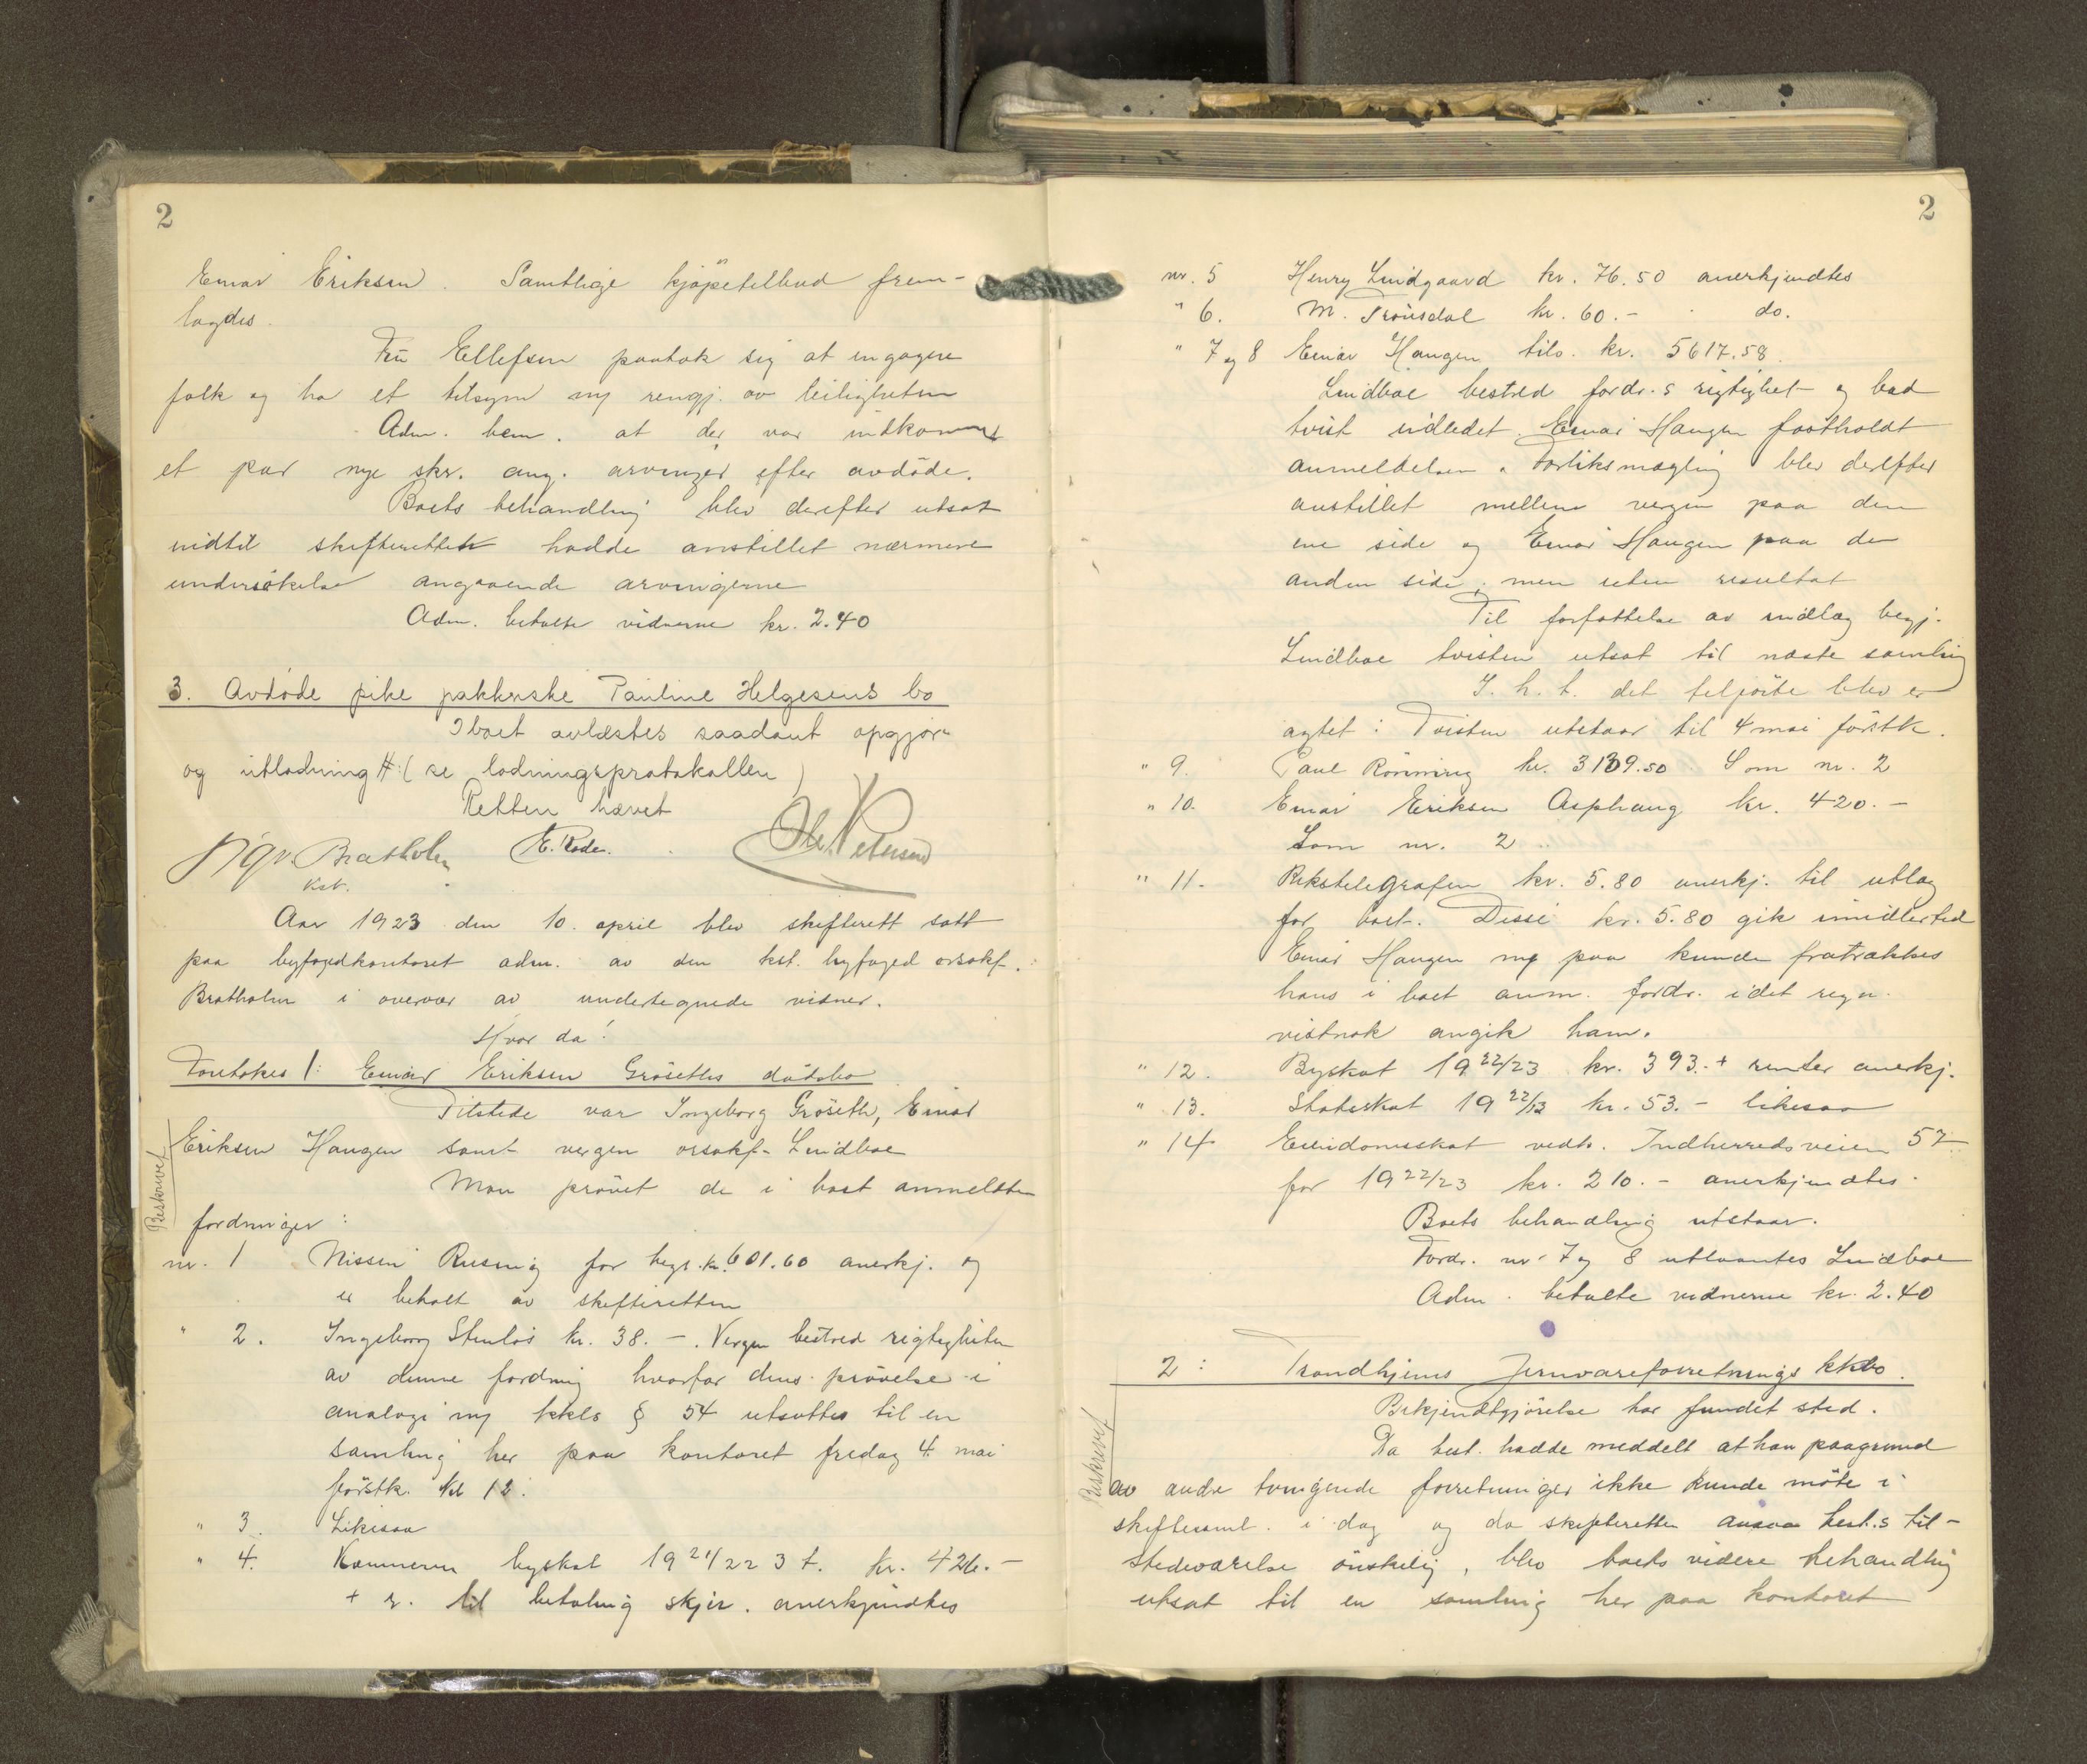 2
Einar Eriksen. Samtlige kjøpetilbud frem-
lagdes.
Fru Ellefsen paatok sig at engagere
folk og ha et tilsyn mg rengj. av leiligheten
Adm. bem. at der var indkommet
et par nye skr. ang. arvinger efter avdøde.
Boets behandling blev derefter utsat
indtil skifteretten hadde anstillet nærmere
undersøkelse angaaende arvingerne
Adm. betalte vidnerne kr. 2.40
3. Avdøde pike pakkerske Pauline Helgesens bo
I boet avlæstes saadant opgjør
og utlodning #: (se lodningsprotokollen)
Retten hævet
Sigv. Bratholm E. Rode. Ole Petersen
kst.
Aar 1923 den 10. april blev skifterett satt
paa byfogedkontoret adm. av den kst. byfoged orsakf.
Bratholm i overvær av undertegnede vidner.
Hvor da!
Foretokes 1: Einar Eriksen Grøseths dødsbo
Tilstede var Ingeborg Grøseth, Einar
Eriksen Haugen samt vergen orsakf. Lindboe
Beskrevet
Man prøvet de i boet anmeldte
fordringer:
nr. 1 Nissen Rusnig for begr. kr. 601.60 anerkj. og
er betalt av skifteretten
" 2. Ingeborg Stenløs kr. 38.-. Vergen bestred rigtigheten
av denne fordring hvorfor dens prøvelse i
analogi mg kkls § 54 utsattes til en
samling her paa kontoret fredag 4. mai
førstk. kl 12.
" 3. Likesaa
" 4. Kæmneren byskat 19 21/22 3 t. kr. 426.-
+ r. til betaling skjer. anerkjendtes
2
nr. 5 Henry Lindgaard kr. 76.50 anerkjendtes
" 6. M. Trønsdal kr. 60.- do.
" 7 og 8 Einar Haugen tils. kr. 5617.58.
Lindboe bestred fordr.s rigtighet og bad
tvist indledet. Einar Haugen fastholdt
anmeldelsen. Forliksmægling blev derefter
anstillet mellem vergen paa den
ene side og Einar Haugen paa den
anden side, men uten resultat
Til forfattelse av indlæg begj.
Lindboe tvisten utsat til næste samling
I. h. t. det tilførte blev er
agtet: Tvisten utstaar til 4 mai førstk.
" 9. Paul Rønning kr. 3139.50 Som nr. 2
" 10. Einar Eriksen Asphaug kr. 420.-
Som nr. 2
" 11. Rikstelegrafen kr. 5.80 anerkj. til utlæg
for boet. Disse kr. 5.80 gik imidlertid
Einar Haugen mg paa kunde fratrækkes
hans i boet anm. fordr. idet regn.
vistnok angik ham.
" 12. Byskat 19 22/23 kr. 393.+ renter anerkj.
" 13. Statsskat 19 22/23 kr. 53.- likesaa
" 14 Eiendomsskat vedk. Indherredsveien 57
for 19 22/23 kr. 210.- anerkjendtes.
Boets behandling utstaar.
Fordr. nr 7 og 8 utlaantes Lindboe
Adm. betalte vidnerne kr. 2.40
2: Trondhjems Jernvareforretnings kkbo.
Bekjendtgjørelse har fundet sted.
Beskrevet
Da best. hadde meddelt at han paagrund
av andre tvingende forretninger ikke kunde møte i
skiftesaml. i dag og da skifteretten ansaa best.s til-
stedeværelse ønskelig, blev boets videre behandling
utsat til en samling her paa kontoret